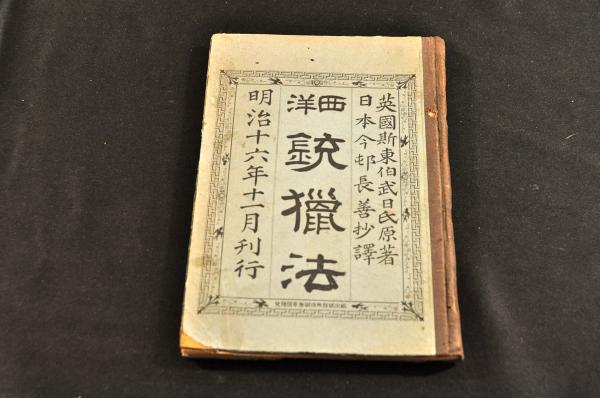 英國斯東伯武日氏原著
日本今邨長善抄譯
西洋
銃獵法
明治十六年十一月刊行